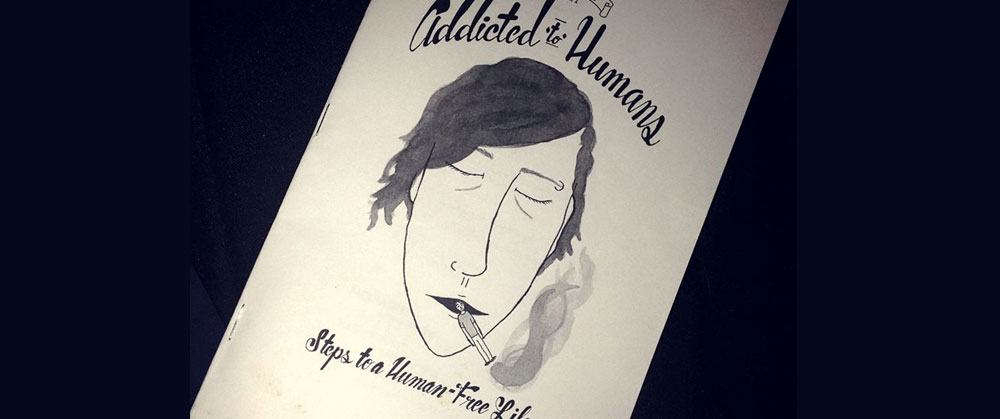 Addicted to Humans
Steps to a Human-Free